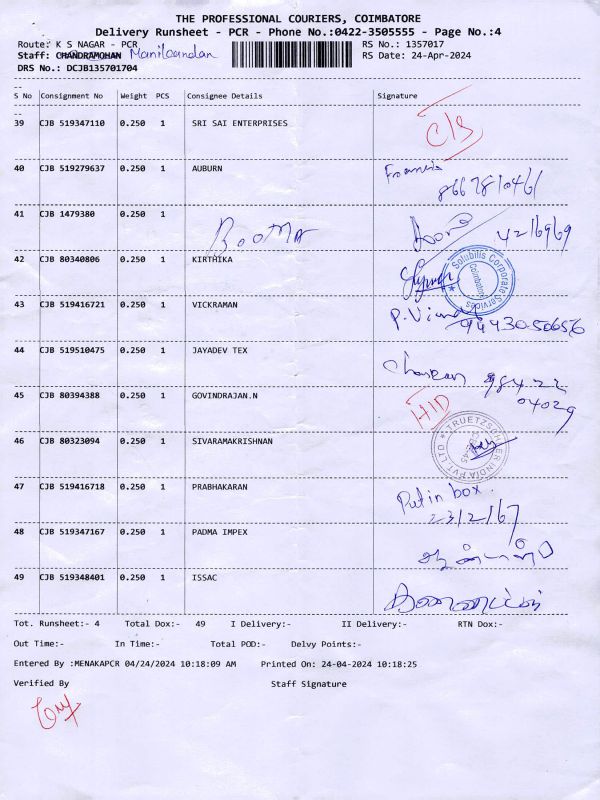 THE PROFESSIONAL COURIERS, COIMBATORE
Delivery Runsheet - PCR - Phone No.:0422-3505555 - Page No.:4
Route: K S NAGAR - PCR RS No.: 1357017
Staff: CHANDRAMOHAN Manikandan RS Date: 24-Apr-2024
DRS No.: DCJB135701704
S No Consignment No Weight PCS Consignee Details Signature
39 CJB 519347110 0.250 1 SRI SAI ENTERPRISES
40 CJB 519279637 0.250 1 AUBURN Francis
8667810461
41 CJB 1479380 0.250 1 BOOMA 4216969
42 CJB 80340806 0.250 1 KIRTHIKA Solubilis Corporate Services Coimbatore
43 CJB 519416721 0.250 1 VICKRAMAN 94430-50656
44 CJB 519510475 0.250 1 JAYADEV TEX 98422
04029
45 CJB 80394388 0.250 1 GOVINDRAJAN.N HID
46 CJB 80323094 0.250 1 SIVARAMAKRISHNAN TRUETZSCHLER INDIA PVT LTD
47 CJB 519416718 0.250 1 PRABHAKARAN Put in box.
23/2/67
48 CJB 519347167 0.250 1 PADMA IMPEX
49 CJB 519348401 0.250 1 ISSAC
Tot. Runsheet:- 4 Total Dox:- 49 I Delivery:- II Delivery:- RTN Dox:-
Out Time:- In Time:- Total POD:- Delvy Points:-
Entered By :MENAKAPCR 04/24/2024 10:18:09 AM Printed On: 24-04-2024 10:18:25
Verified By Staff Signature